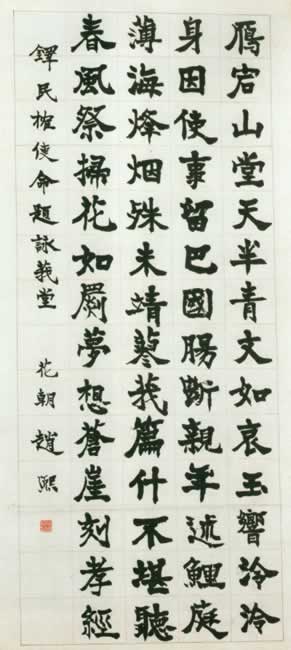 鴈宕山堂天半青文如哀玉響泠泠
身因使事留巴國腸斷親年述鯉庭
薄海烽烟殊未靖蓼莪篇什不堪聽
春風祭掃花如罽夢想蒼崖刻孝經
鐸民被使命題詠莪堂 花朝趙熙